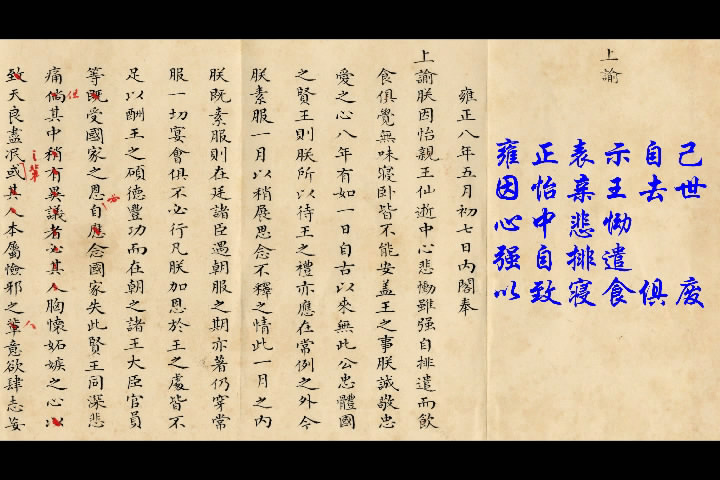 上諭
雍正表示自己
因怡棄王去世
心中悲慟
强自排遣
以致寢食俱廢
雍正八年五月初七日內閣奉
上諭朕因怡親王仙逝中心悲慟雖强自排遣而飲
食俱覺無味寢卧皆不能安盖王之事朕誠敬忠
愛之心八年有如一日自古以來無此公忠體國
之賢王則朕所以待王之禮亦應在常例之外今
朕素服一月以稍展思念不釋之情此一月之內
朕既素服則在廷諸臣遇朝服之期亦著仍穿常
服一切宴會俱不必行凡朕加恩於王之處皆不
足以酬王之碩德豐功而在朝之諸王大臣官員
等既受國家之恩自應念國家失此賢王同深悲
但
痛倘其中稍有異議者必其人胸懷妬嫉之心以
之輩
致天良盡泯或其人本屬憸邪之輩意欲肆志妄
人